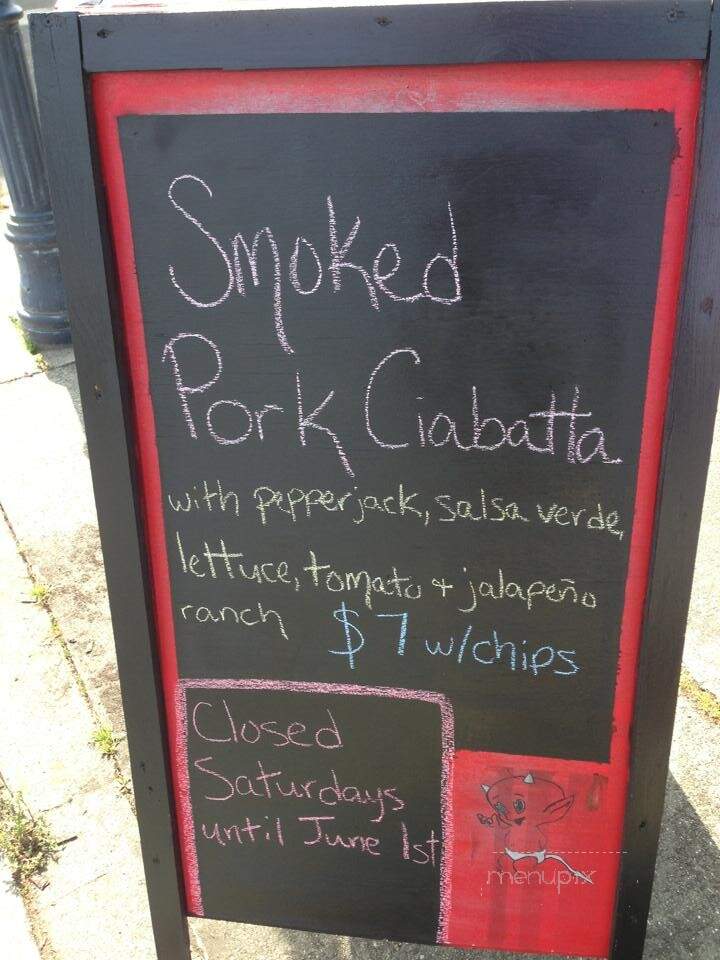 Smoked
Pork Ciabatta
with pepperjack, salsa verde,
lettuce, tomato + jalapeño
ranch $7 w/chips
Closed
Saturdays
until June 1st
menupix